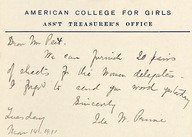 AMERICAN COLLEGE FOR GIRLS
ASS'T TREASURER'S OFFICE
Dear Mr Peet.
We can furnish 20 pairs
of sheets for the women delegates.
I forgot to send you word yesterday
Sincerely
Ida W. Prime
Tuesday
Mar. 14, 1911